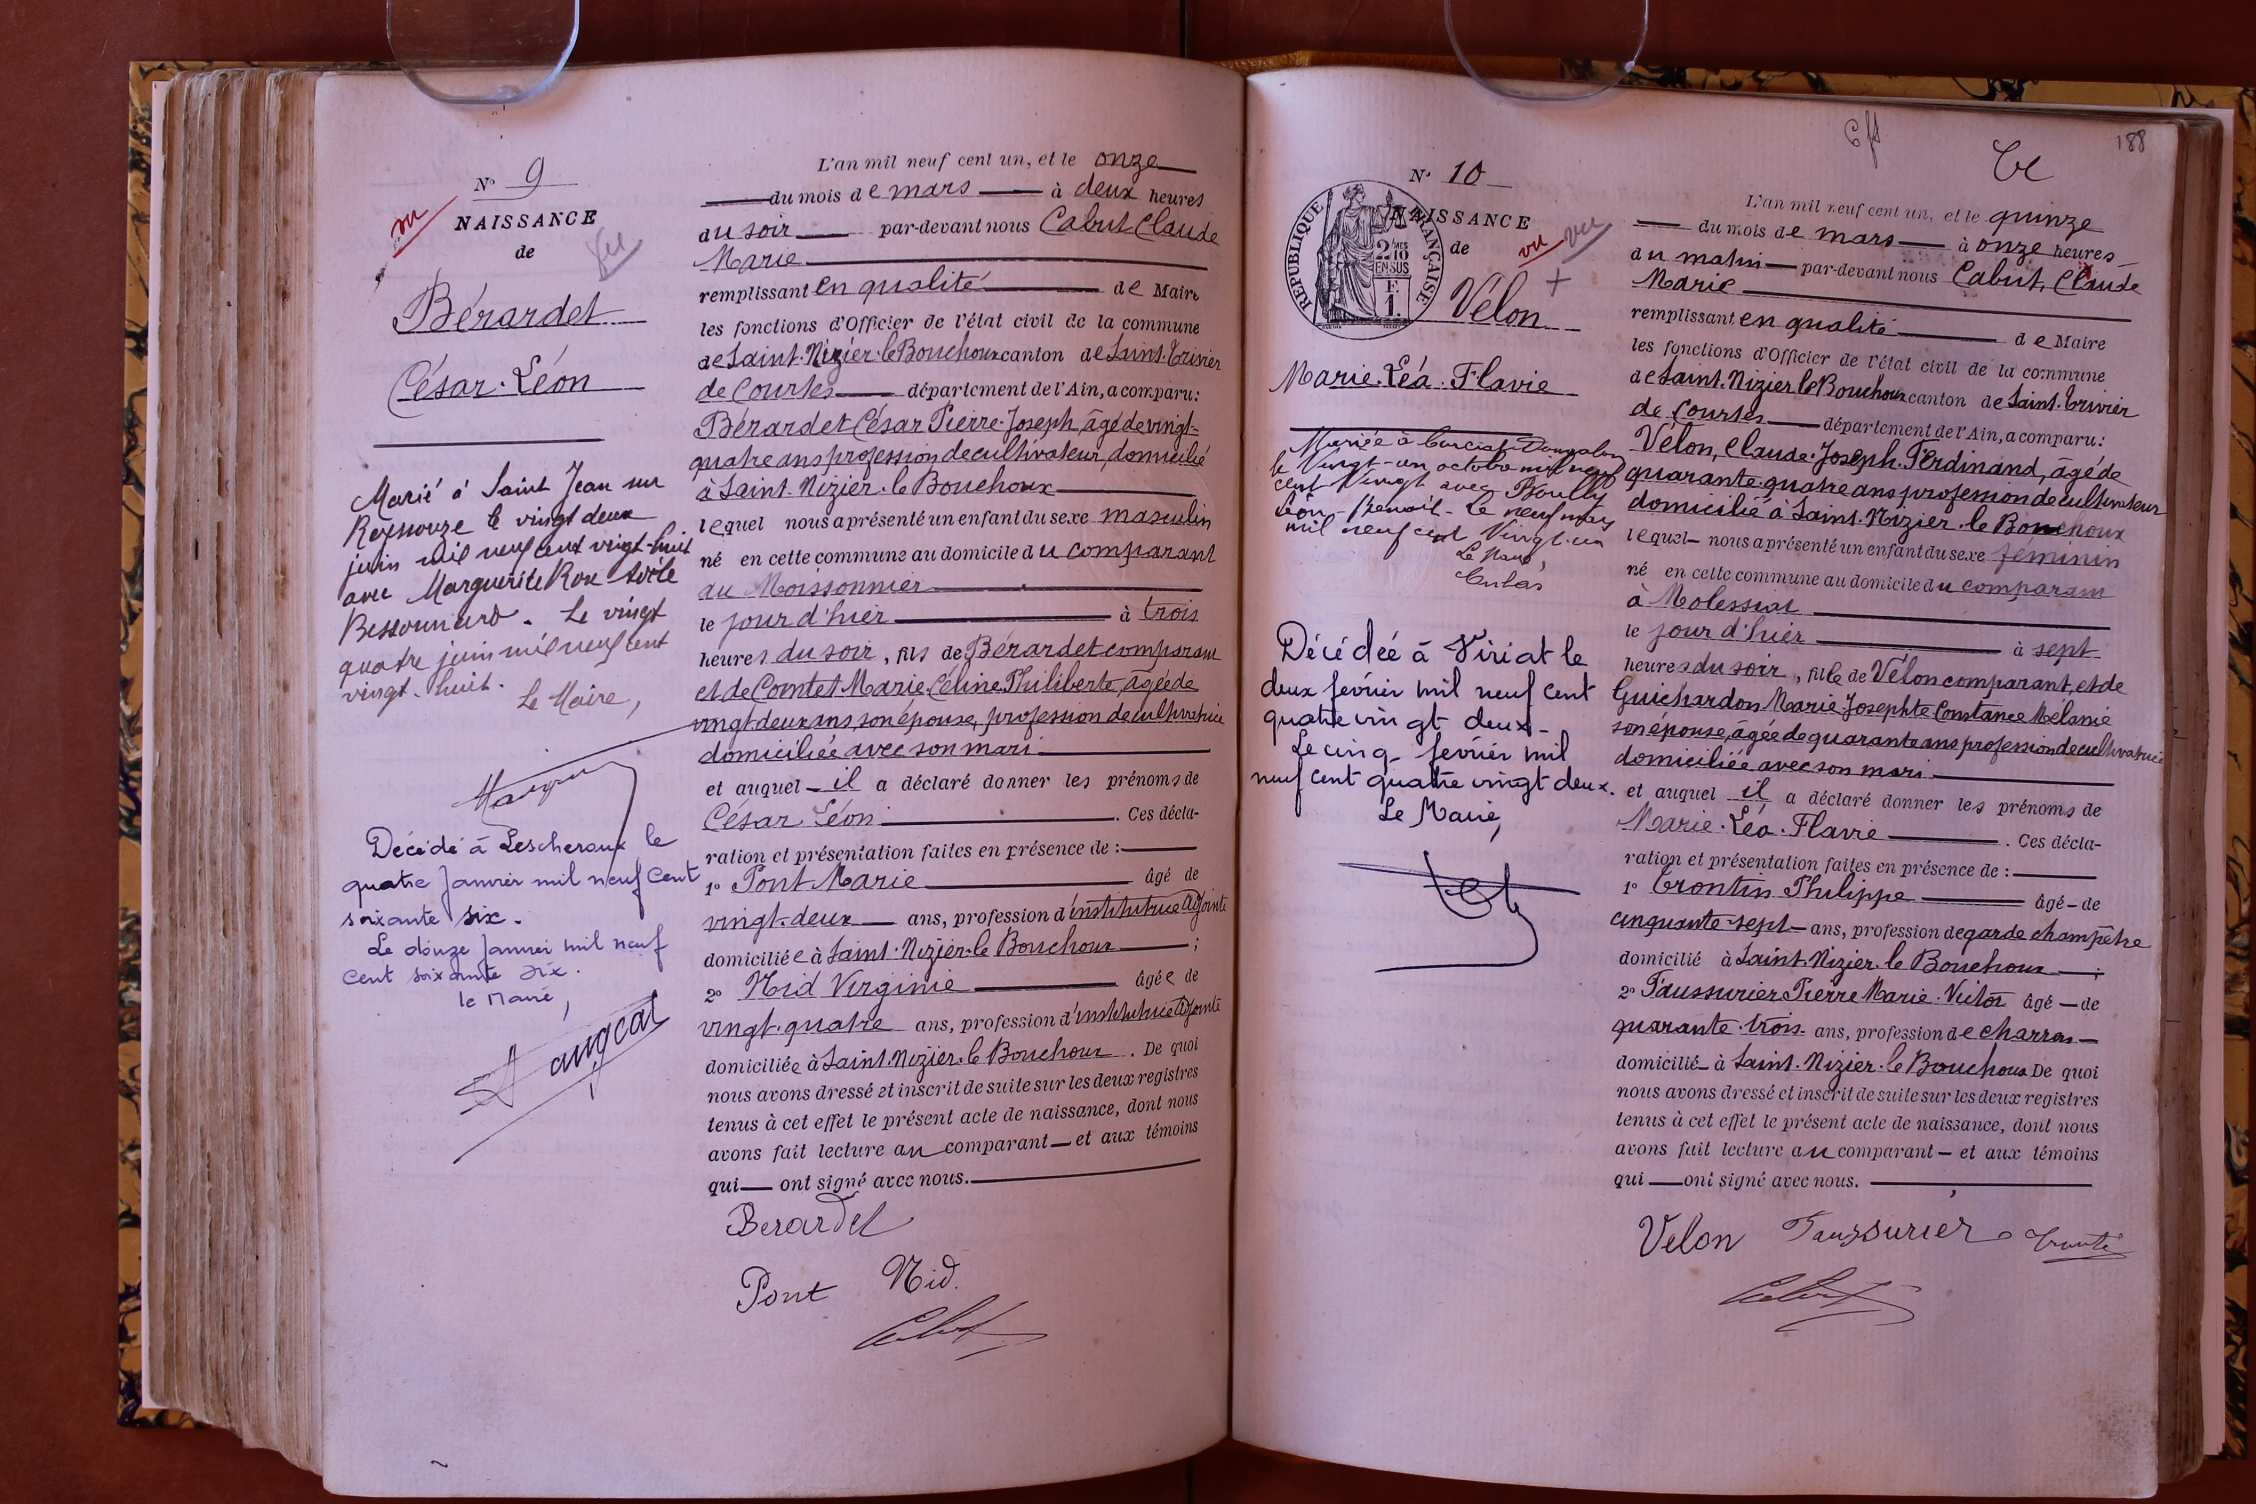 N° 9
NAISSANCE
de
vu
vu
Bérardet
César Léon
Marié à Saint Jean sur
Reyssouze le vingt deux
juin mil neuf cent vingt-huit
avec Marguerite Rose
Bessonnard. Le vingt
quatre juin mil neuf cent
vingt-huit.
Le Maire,
Décédé à Lescheroux le
quatre Janvier mil neuf cent
soixante six.
Le douze Janvier mil neuf
cent soixante six.
le Maire,
L'an mil neuf cent un, et le onze
du mois de mars à deux heures
du soir par-devant nous Cabut Claude
Marie
remplissant en qualité de Maire
les fonctions d'Officier de l'état civil de la commune
de Saint-Nizier-le-Bouchoux canton de Saint-Trivier
de Courtes département de l'Ain, a comparu:
Bérardet César Pierre-Joseph, âgé de vingt-
quatre ans profession de cultivateur, domicilié
à Saint-Nizier-le Bouchoux
lequel nous a présenté un enfant du sexe masculin
né en cette commune au domicile du comparant
au Moissonnier
le jour d'hier à trois
heures du soir, fils de Bérardet comparant
et de Comtet Marie Céline Philiberte, âgée de
vingt-deux ans, son épouse, profession de cultivatrice
domiciliée avec son mari
et auquel il a déclaré donner les prénoms de
César Léon. Ces décla-
ration et présentation faites en présence de :
1° Pont Marie âgé de
vingt-deux ans, profession d'institutrice adjointe
domiciliée à Saint-Nizier-le Bouchoux ;
2° Nid Virginie âgée de
vingt-quatre ans, profession d'institutrice adjointe
domiciliée à Saint-Nizier-le Bouchoux. De quoi
nous avons dressé et inscrit de suite sur les deux registres
tenus à cet effet le présent acte de naissance, dont nous
avons fait lecture au comparant et aux témoins
qui ont signé avec nous.
Berardet
Pont Nid
Cabut
188
N° 10
NAISSANCE
de
RÉPUBLIQUE FRANÇAISE
vu vu
Vélon
Marie-Léa-Flavie
Mariée à Curciat-Dongalon
le Vingt-un octobre mil neuf
cent Vingt avec
Léon-Benoit - Le neuf
mil neuf cent Vingt-un
Le Maire,
Décédée à Viriat le
deux février mil neuf cent
quatre vingt deux -
Le cinq février mil
neuf cent quatre vingt deux.
Le Maire,
L'an mil neuf cent un, et le quinze
du mois de mars à onze heures
du matin par-devant nous Cabut, Claude
Marie
remplissant en qualité de Maire
les fonctions d'Officier de l'état civil de la commune
de Saint-Nizier le Bouchoux canton de Saint-Trivier
de Courtes département de l'Ain, a comparu:
Vélon, Claude-Joseph-Ferdinand, âgé de
quarante-quatre ans profession de cultivateur
domicilié à Saint-Nizier-le Bouchoux
lequel nous a présenté un enfant du sexe féminin
né en cette commune au domicile du comparant
à Molessiat
le jour d'hier à sept
heures du soir, fille de Vélon comparant, et de
Guichardon Marie-Josephte Constance Mélanie
son épouse, âgée de quarante ans profession de cultivatrice
domiciliée avec son mari
et auquel il a déclaré donner les prénoms de
Marie-Léa-Flavie. Ces décla-
ration et présentation faites en présence de :
1° Trontin Philippe âgé de
cinquante-sept ans, profession de garde champêtre
domicilié à Saint-Nizier-le Bouchoux ;
2° Faussurier Pierre Marie-Victor âgé de
quarante-trois ans, profession de charron
domicilié à Saint-Nizier-le Bouchoux De quoi
nous avons dressé et inscrit de suite sur les deux registres
tenus à cet effet le présent acte de naissance, dont nous
avons fait lecture au comparant et aux témoins
qui ont signé avec nous.
Velon Faussurier Trontin
Cabut